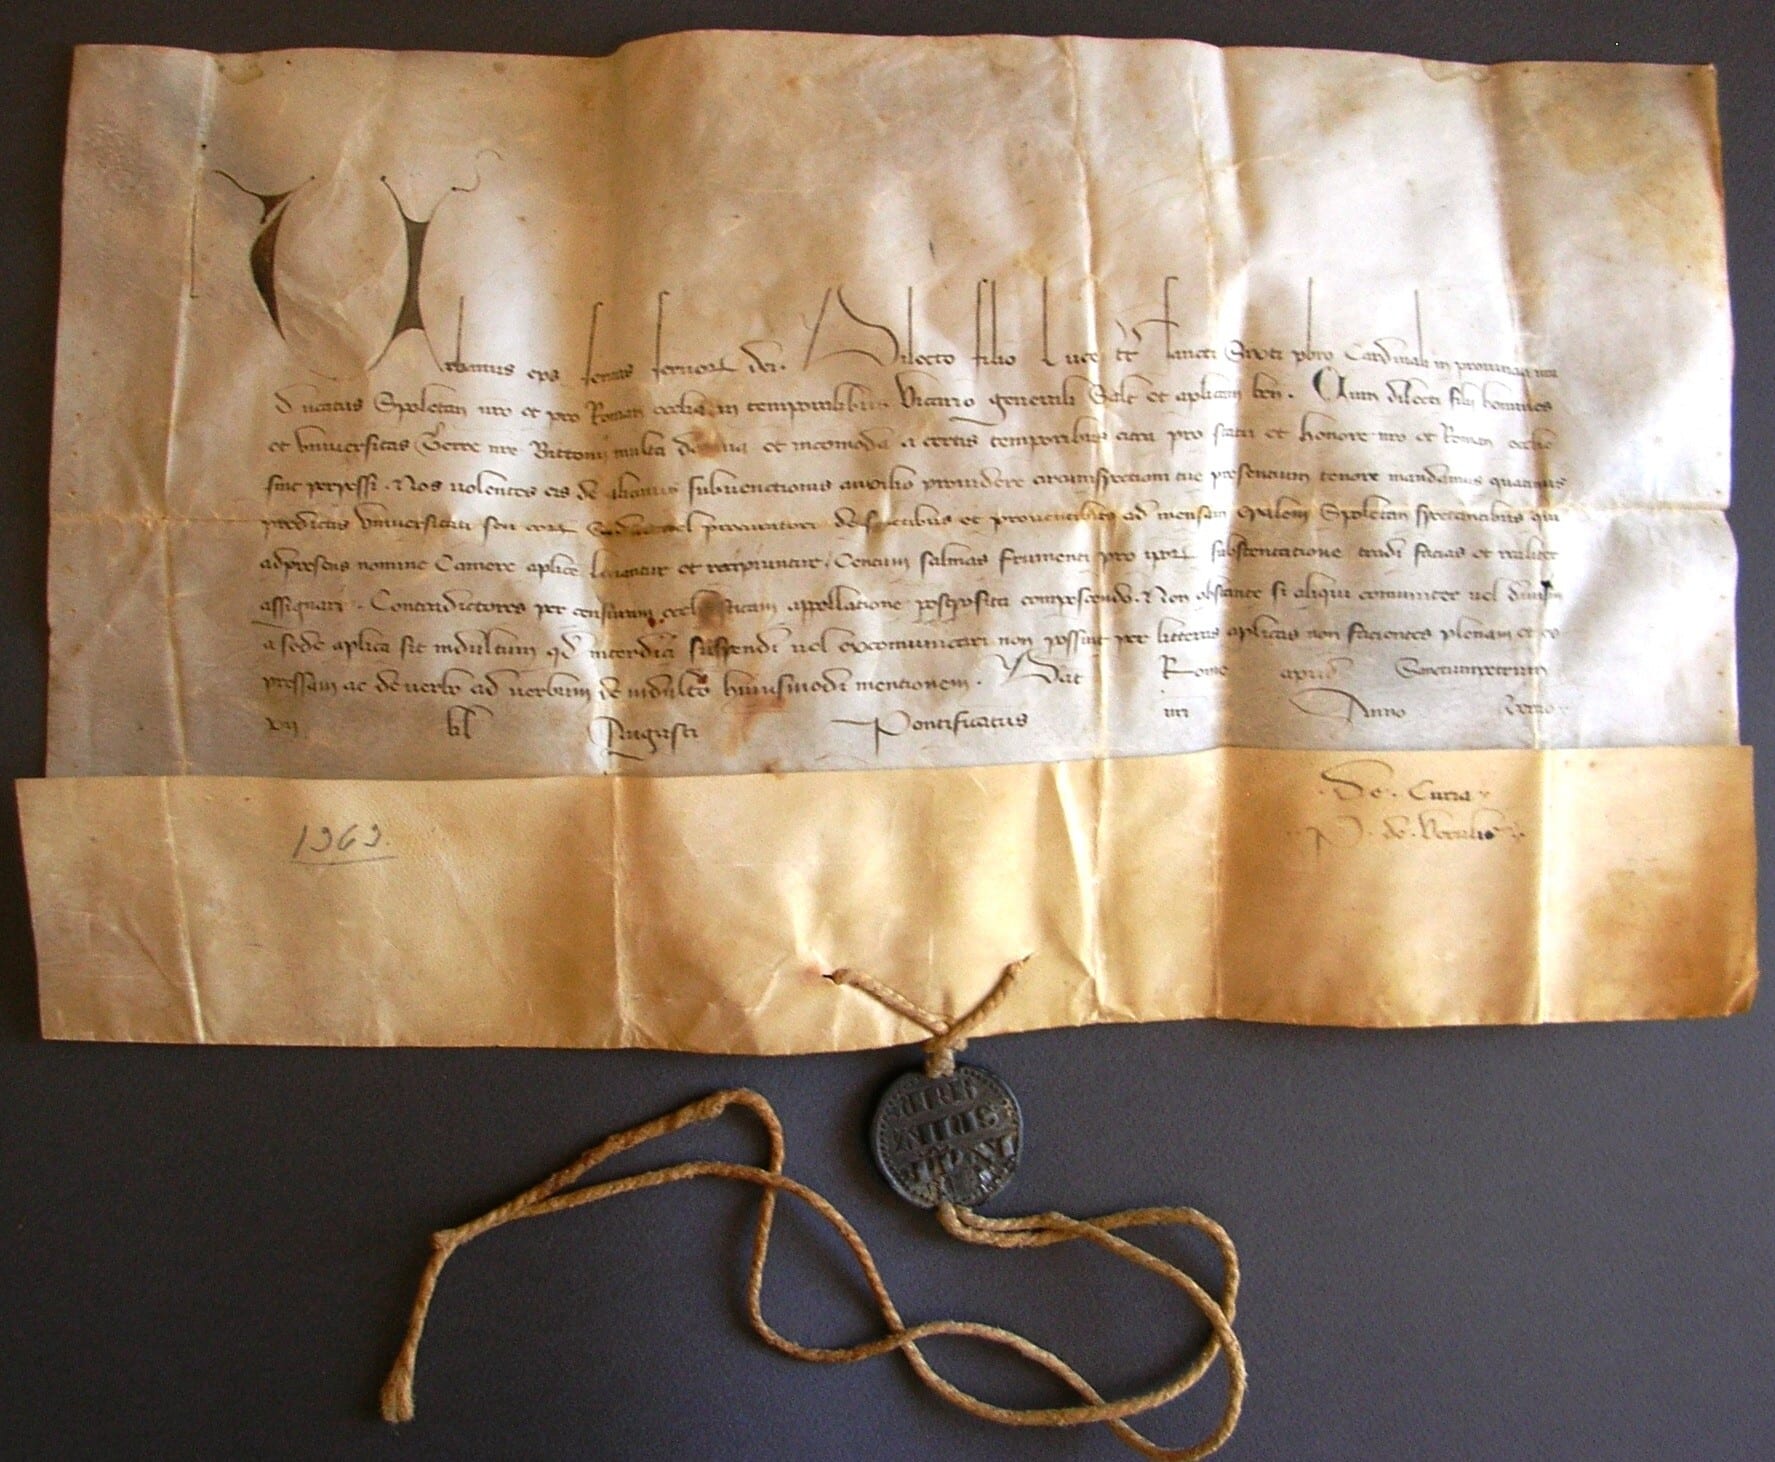 Urbanus eps seruus seruor dei. Dilecto filio Luce tt sancti Sixti pbro Cardinali in prouincia nra
Ducatus Spoletan nro et pro Roman ecclia in temporalibus Vicario generali Salt et aplicam ben. Cum dilecti filij homines
et vniuersitas Terre nre Bittonij multa et incomoda a certis temporibus citra pro statu et honore nro et Roman ecclie
sint perpessi. Nos uolentes eis de alicuius subuentionis auxilio prouidere circumspectioni tue presentium tenore mandamus quatinus
predictis vniuersitati seu eor Sindico uel procuratori de fructibus et prouentibus ad mensam epalem Spoletan spectantibus qui
adpresens nomine Camere aplice leuantur et recipiuntur Centum salmas frumenti pro ipor substentatione tradi facias et realiter
assignari. Contradictores per censuram ecclesiasticam appellatione postposita compescendo. Non obstante si aliqui comuniter uel diuisim
a sede aplica sit indultum qd interdici suspendi uel excomunicari non possint per litteras aplicas non facientes plenam et ex
pressam ac de uerbo ad uerbum de indulto huiusmodi mentionem. Dat Rome apud Sanctumpetrum
vij kl Augusti Pontificatus nri Anno
De. Curia
P. de.
1363.
VRB
ANVS